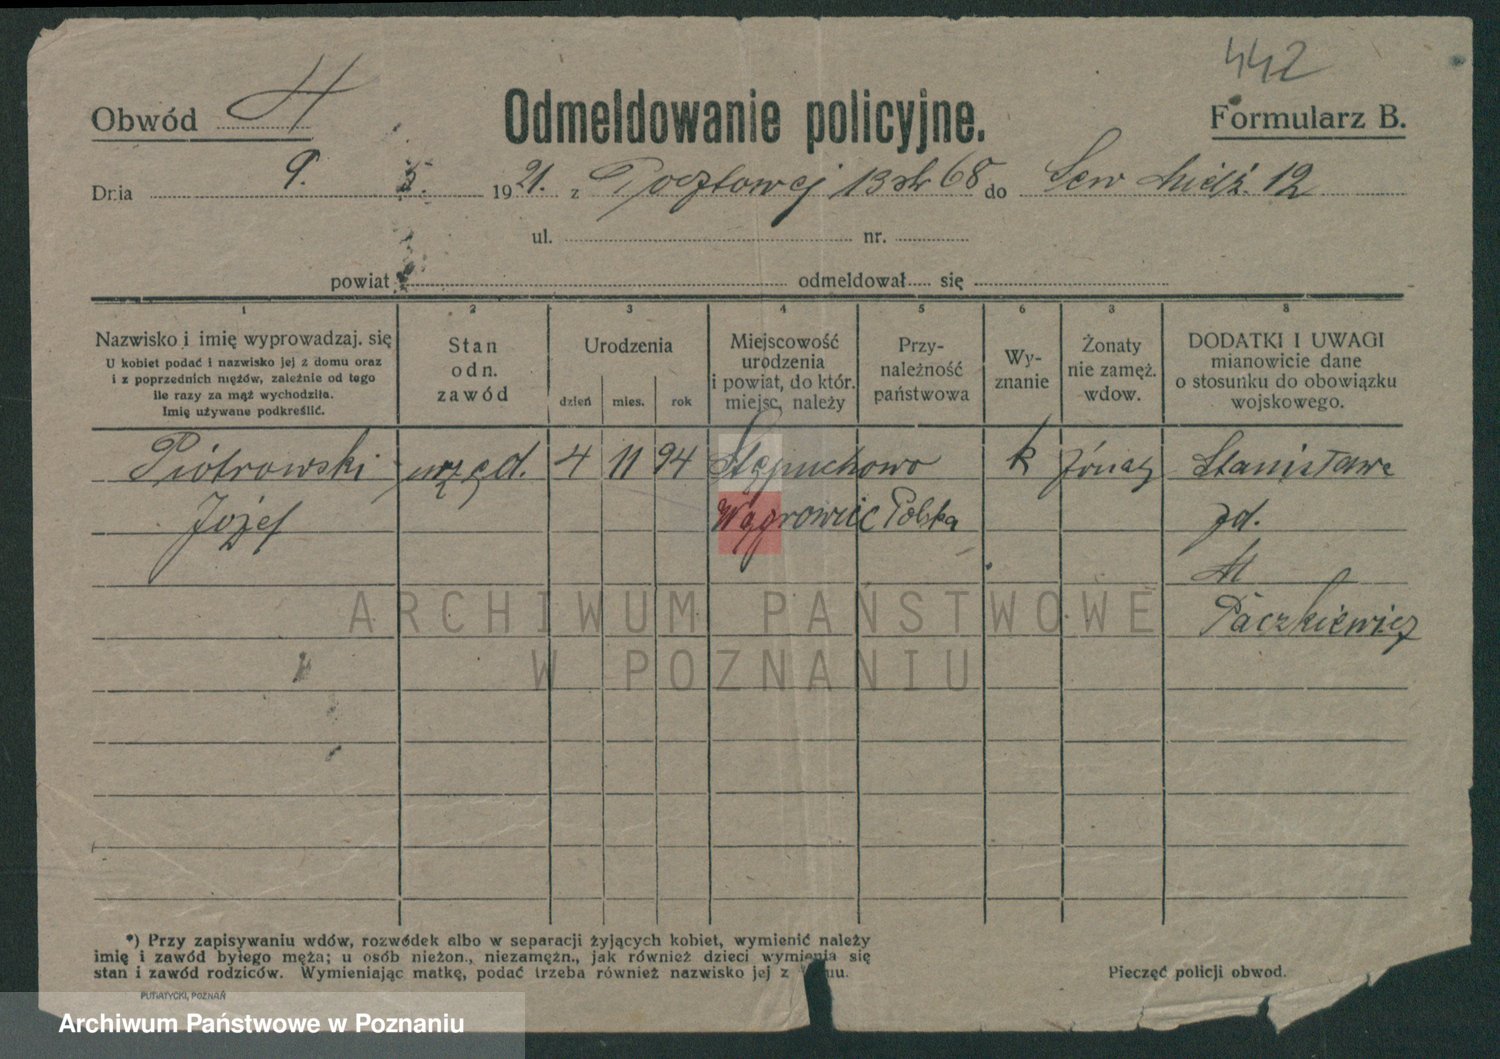 442
Obwód H Odmeldowanie policyjne. Formularz B.
Dnia 9. 5. 1921. z Pocztowej 13 68 do Sew Mielż. 12
ul. nr.
powiat odmeldował się
1 2 3 4 5 6 3 8
Nazwisko i imię wyprowadzaj. się
U kobiet podać i nazwisko jej z domu oraz
i z poprzednich mężów, zależnie od tego
ile razy za mąż wychodziła.
Imię używane podkreślić.
Stan
odn.
zawód
Urodzenia
dzień mies. rok
Miejscowość
urodzenia
i powiat, do któr.
miejsc, należy
Przy-
należność
państwowa
Wy-
znanie
Żonaty
nie zamęż.
wdow.
DODATKI I UWAGI
mianowicie dane
o stosunku do obowiązku
wojskowego.
Piotrowski urzęd. 4 11 94 Stępuchowo k żonaty Stanisława
Józef Wągrowiec Polska zd.
Paczkiewicz
ARCHIWUM PAŃSTWOWE
W POZNANIU
*) Przy zapisywaniu wdów, rozwódek albo w separacji żyjących kobiet, wymienić należy
imię i zawód byłego męża; u osób nieżon., niezamężn., jak również dzieci wymienia się
stan i zawód rodziców. Wymieniając matkę, podać trzeba również nazwisko jej z
Pieczęć policji obwod.
PUTIATYCKI, POZNAŃ
Archiwum Państwowe w Poznaniu